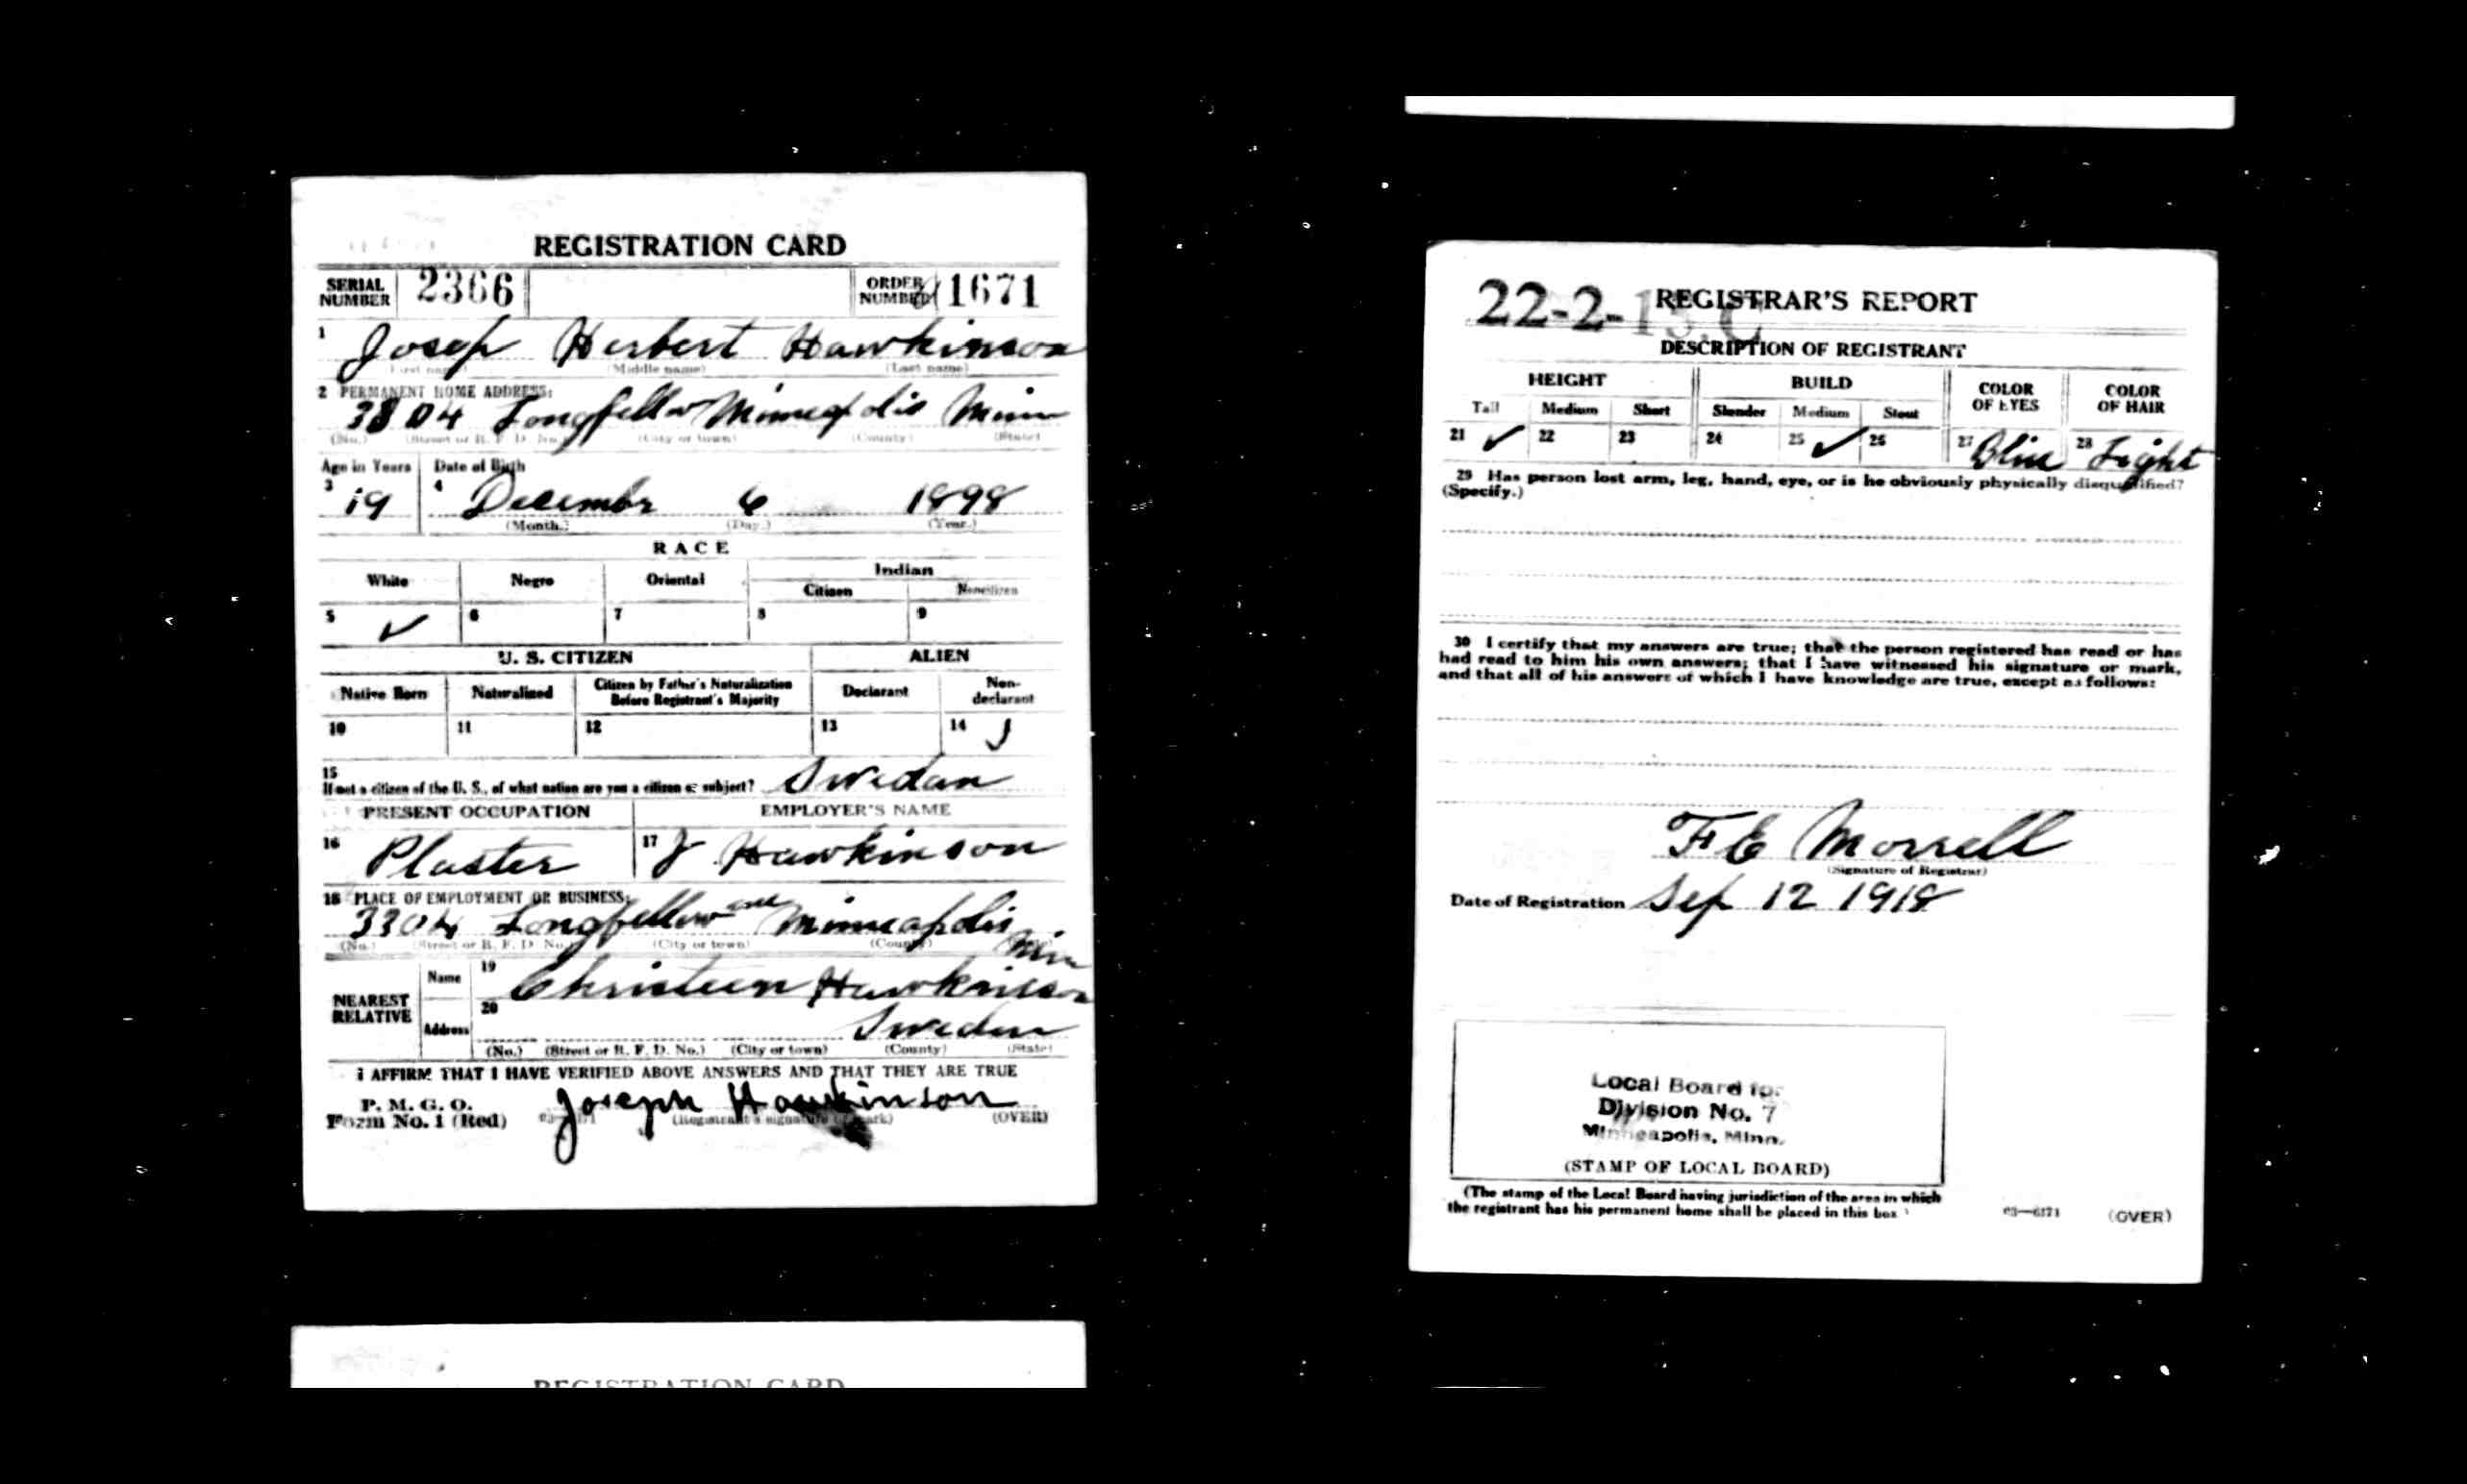 REGISTRATION CARD
SERIAL NUMBER 2366 ORDER NUMBER 1671
1 Josep Herbert Hawkinson
(First name) (Middle name) (Last name)
2 PERMANENT HOME ADDRESS:
3304 Longfellow Minneapolis Minn
(No.) (Street or R. F. D. No.) (City or town) (County) (State)
Age in Years Date of Birth
3 19 4 Decembr 6 1898
(Month.) (Day.) (Year.)
RACE
White Negro Oriental Indian
Citizen Noncitizen
5 ✓ 6 7 8 9
U. S. CITIZEN ALIEN
Native Born Naturalized Citizen by Father's Naturalization Before Registrant's Majority Declarant Non-declarant
10 11 12 13 14 ✓
15
If not a citizen of the U. S., of what nation are you a citizen or subject? Swedan
PRESENT OCCUPATION EMPLOYER'S NAME
16 Plaster 17 J Hawkinson
18 PLACE OF EMPLOYMENT OR BUSINESS:
3304 Longfellow ave Minneapolis Min
(No.) (Street or R. F. D. No.) (City or town) (County) (State)
NEAREST RELATIVE
Name 19 Christeen Hawkinson
Address 20 Sweden
(No.) (Street or R. F. D. No.) (City or town) (County) (State)
I AFFIRM THAT I HAVE VERIFIED ABOVE ANSWERS AND THAT THEY ARE TRUE
P. M. G. O.
Form No. 1 (Red) 03—6171 Joseph Hawkinson
(Registrant's signature or mark) (OVER)
REGISTRATION CARD
22-2-13. C REGISTRAR'S REPORT
DESCRIPTION OF REGISTRANT
HEIGHT BUILD COLOR OF EYES COLOR OF HAIR
Tall Medium Short Slender Medium Stout
21 ✓ 22 23 24 25 ✓ 26 27 Blue 28 Light
29 Has person lost arm, leg, hand, eye, or is he obviously physically disqualified?
(Specify.)
30 I certify that my answers are true; that the person registered has read or has
had read to him his own answers; that I have witnessed his signature or mark,
and that all of his answers of which I have knowledge are true, except as follows:
F E Morrell
(Signature of Registrar)
Date of Registration Sep 12 1918
Local Board for
Division No. 7
Minneapolis, Minn.
(STAMP OF LOCAL BOARD)
(The stamp of the Local Board having jurisdiction of the area in which
the registrant has his permanent home shall be placed in this box.)
03—6171 (OVER)